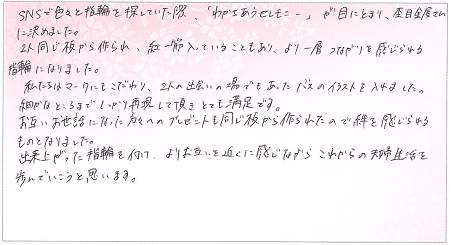 SNSで色々と指輪を探していた際、「わかちあうセレモニー」が目にとまり、杢目金屋さん
に決めました。
2人同じ板から作られ、紅一筋入っていることもあり、より一層つながりを感じられる
指輪になりました。
私たちはマークにもこだわり、2人の出会いの場でもあったバスのイラストを入れました。
細かなところまでしっかり再現して頂きとても満足です。
お互いお世話になった方々へのプレゼントも同じ板から作られたので絆を感じられる
ものとなりました。
出来上がった指輪を付け、よりお互いを近くに感じながらこれからの夫婦生活を
歩んでいこうと思います。